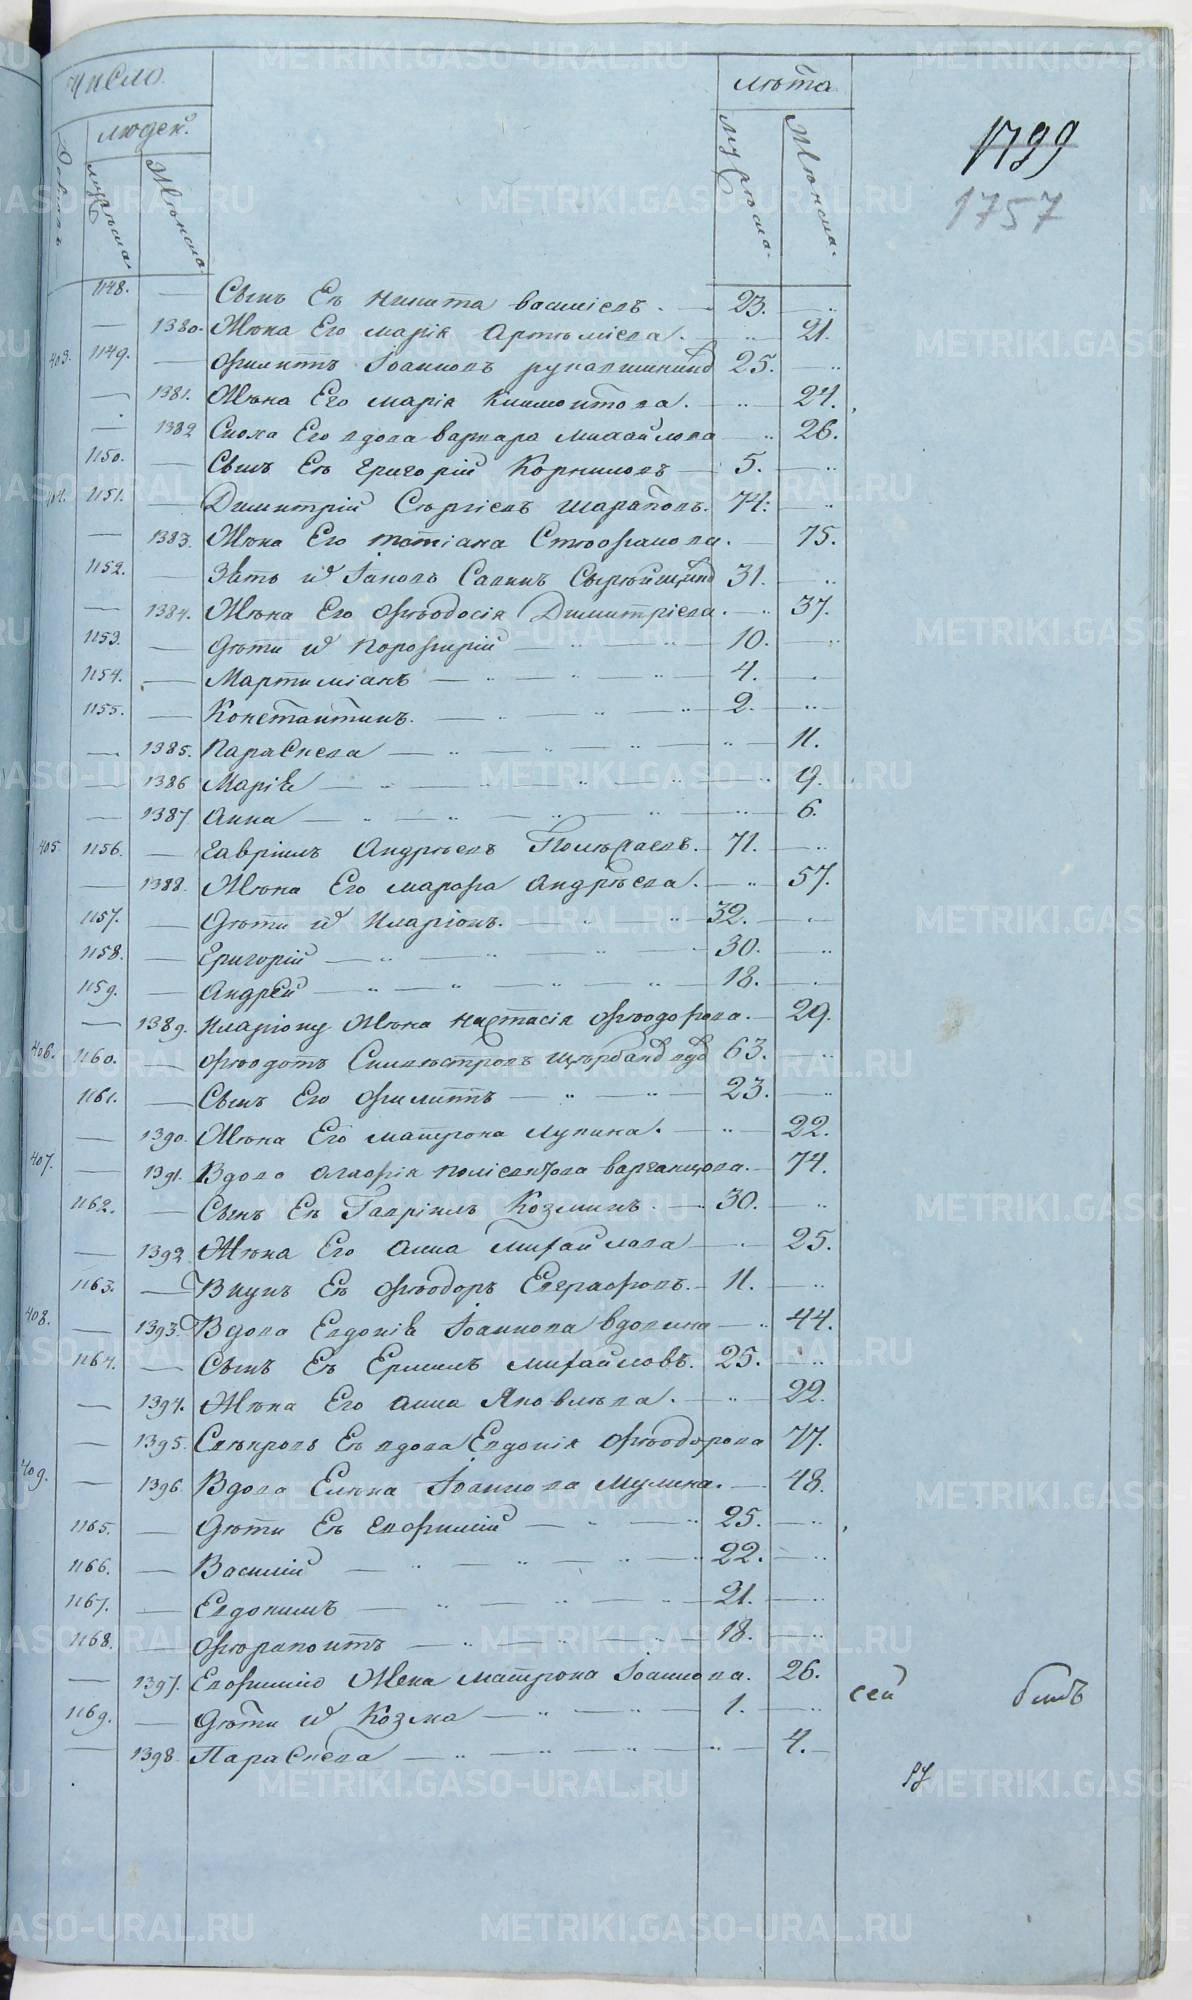 Число
Лѣта
людей.
Дворовъ
мужеска.
Женска
Мужеска.
Женска.
1799
1757
1148. — Сынъ Ея Никита Василіевъ. — 23. — ..
— 1380. Жена Его Марія Артемиева. — .. 21.
403. 1149. — Филиппъ Іоанновъ 25. — ..
— 1381. Жена Его Марія Климонтова. — .. 24.
— 1382 Сноха Его вдова варвара Михайлова — .. 26.
1150. — Сынъ Ея Григорій Корниловъ — 5. — ..
404. 1151. — Димитрій Сергіевъ Шараповъ. 74. — ..
— 1383. Жена Его Татіана Стефанова. — 75.
1152. — Зять и Іаковъ Савинъ 31. — ..
— 1384. Жена Его Феодосія Димитріева. — .. 37.
1153. — Дѣти и Порфирій — .. — .. 10. — ..
1154. — Мартиміанъ — .. — .. — .. 4. — .
1155. — Константинъ. — .. — .. — 2. — ..
— 1385. Параскева — .. — .. — .. — .. — 11.
— 1386 Марія — .. — .. — .. — .. 9.
— 1387 Анна — .. — .. — .. — .. 6.
405 1156. — Гавріилъ Андреевъ 71. — ..
— 1388. Жена Его Марфа Андрѣева. — .. 57.
1157. — Дѣти и Иларіонъ. — .. — .. 32. — .
1158. — Григорій — .. — .. — .. — 30. — ..
1159. — Андрей — .. — .. — .. — .. — 18. — .
— 1389. Иларіону Жена Настасія Феодорова. — 29.
406. 1160. — Феодотъ Силвестровъ 63. — ..
1161. — Сынъ Его Филиппъ — .. — .. 23. — ..
— 1390. Жена Его Матрона Лупина. — .. — 22.
407. — 1391. Вдова Агафія Поліевктова Варганцова. — 74.
1162. — Сынъ Ея Гавріилъ Козминъ. — 30. — ..
— 1392 Жена Его Анна Михайлова — . — 25.
1163. — Внукъ Ея Феодоръ Евграфовъ. — 11. — ..
408. — 1393. Вдова Евдокія Іоаннова Вдовина — .. 44.
1164. — Сынъ Ея Ермилъ Михайловъ. 25. — ..
— 1394. Жена Его Анна Яковлева. — .. — 22.
— 1395. Свекровъ Ея вдова Евдокія Феодорова 77.
409. — 1396. Вдова Елена Іоаннова Мулина. — 48.
1165. — Дѣти Ея Евфимій — .. — .. 25. — ..
1166. — Василій — .. — .. — .. — .. 22. — ..
1167. — Евдокимъ — .. — .. — .. 21. — ..
1168. — Ферапонтъ — .. — .. — .. 18. — ..
— 1397. Евфимію Жена Матрона Іоаннова. — 26.
1169. — Дѣти и Козма — .. — .. 1. — ..
— 1398. Параскева — .. — .. — .. — .. — 4. —
сей
METRIKI.GASO-URAL.RU